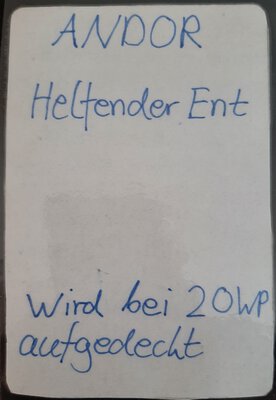 ANDOR
Helfender Ent
Wird bei 20WP
aufgedeckt